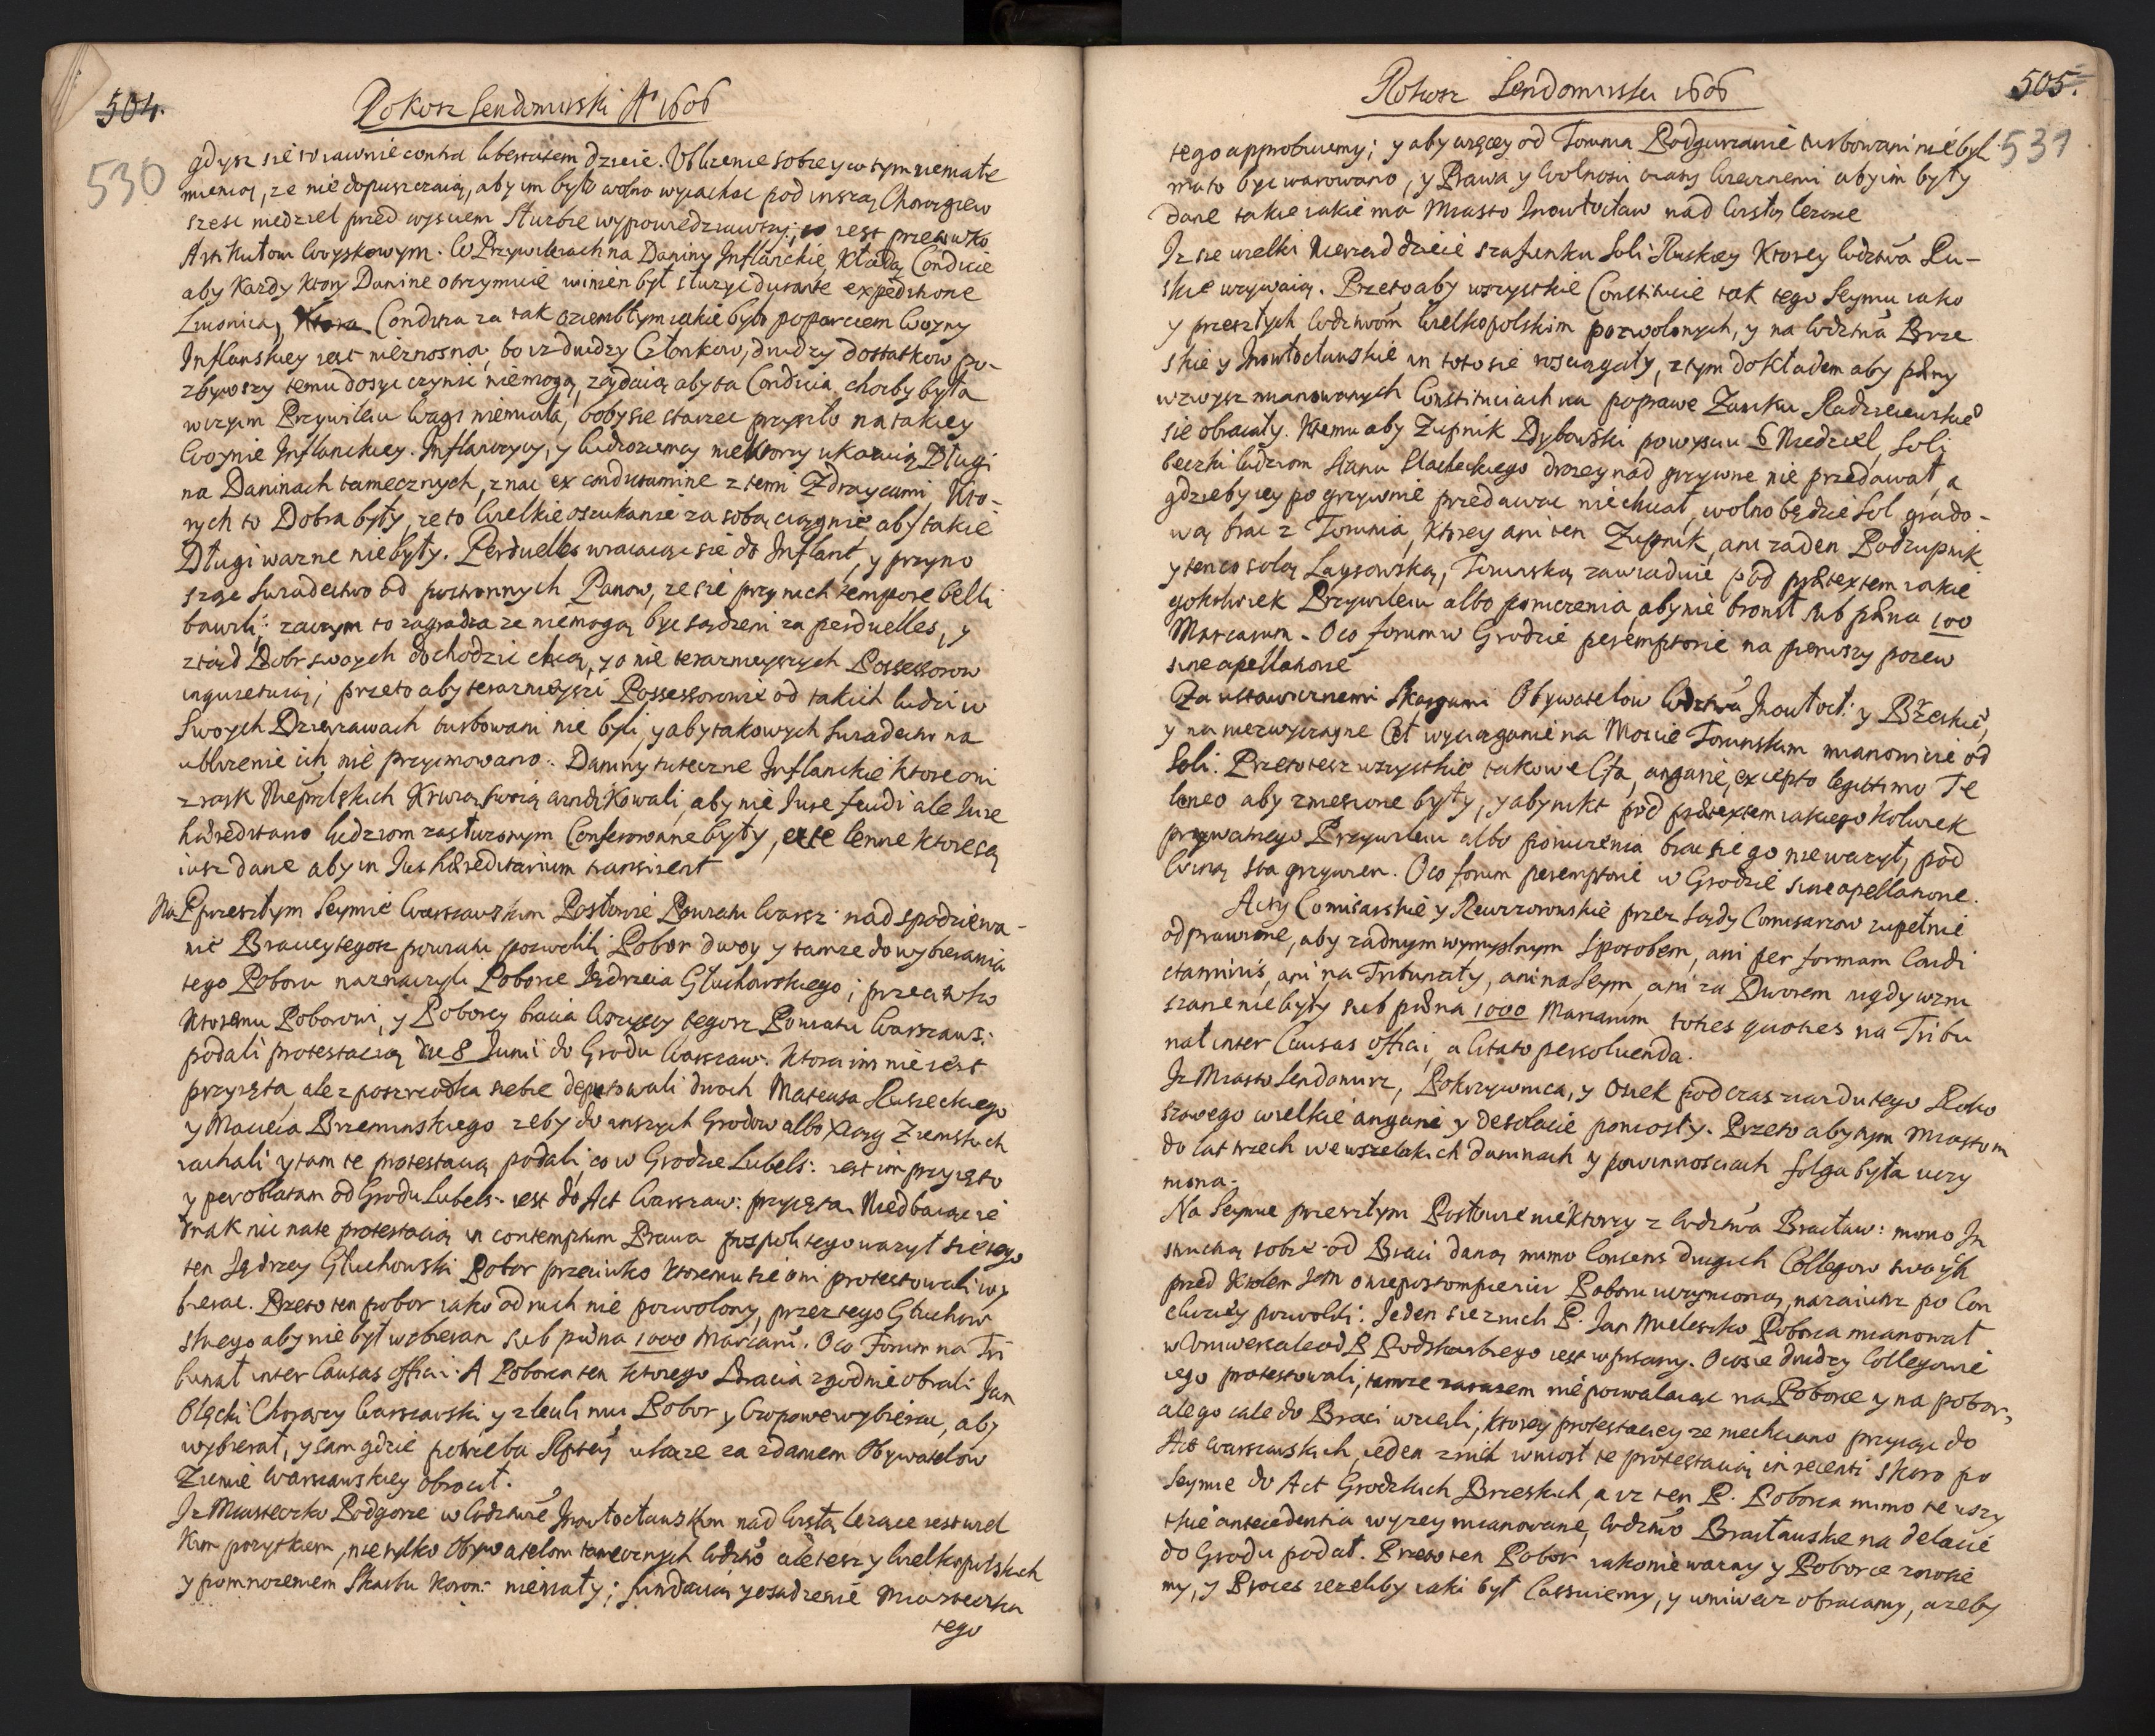 504.
Rokosz Sendomirski Aº 1606
530
gdysz sie to rawnie contra libertatem dzieie. Ubliżenie sobie y w tym niemałe
mienią, ze nie dopuszczaią, aby im było wolno wyiachac pod inszą Chorągiew
szesc niedziel przed wysciem Służbie wypowiedziawszy; co iest przeciwko
Artikułom Woyskowym. W Przywileiach na Daniny Inflanckie kładą Condicie
aby kazdy ktory Danine otrzymuie winien był służyc durante expeditione
Livonica, Condicia za tak oziembłym iakie było poparciem Woyny
Inflanskiey iest nieznosna, bo iz drudzy Członkow, drudzy dostatkow po-
zbywszy temu dosyc czynic niemogą, ządaią aby ta Condicia, chocby była
w czyim Przywileiu Wagi niemiała, boby sie starzec przyszło na takiey
Woynie Inflanckiey. Inflanczycy, y Cudzoziemcy niektorzy ukazuią Długi
na Daninach tamecznych, znac ex condictamine z temi Zdraycami Kto-
rych to Dobra były, ze to Wielkie oszukanie za sobą ciągnie aby takie
Długi wazne niebyły. Perduelles wracaiąc sie do Inflant, y przyno
sząc swiadectwo od postronnych Panow, ze sie przy nich tempore belli
bawili; zaczym to zagradza ze niemogą byc sądzeni za perduelles, y
ztąd Dobr swoych dochodzic chcą, y o nie terazneyszych Possessorow
inquietuią; przeto aby terazneyszi Possessorowie od takich ludzi w
Swoych Dzierzawach turbowani nie byli, y aby takowych swiadectw na
ubliżenie ich nie przyimowano. Daniny tuteczne Inflanckie ktore oni
z rąk Nieprzskich Krwią swoią windikowali, aby nie Jure feudi ale Jure
hæreditario ludziom zasłuzonym Conferowane były, et te lenne ktore są
iusz dane aby in Jus hæreditarium transirent
Na Przeszłym Seymie Warszawskim Posłowie Powiatu Warsz: nad spodziewa-
nie Braciey tegosz powiatu pozwolili Pobor dwoy y tamze do wybierania
tego Poboru naznaczyli Poborce Jędrzeia Głuchowskiego; przeciwko
Ktoremu Poborowi, y Poborcy bracia Wszyscy tegosz Powiatu Warszaws:
podali protestacią die 8 Junii do Grodu Warszaw: Ktora im nie iest
przyięta, ale z poszrodka siebie deputowali dwoch Mateusza Ruseckiego
y Macieia Brzeminskiego zeby do inszych Grodow albo Xiąg Ziemskich
iachali y tam te protestacią podali, co w Grodzie Lubels: iest im przyięto
y per oblatam od Grodu Lubels: iest do Act Warszaw: przyięta. Niedbaiąc ie
dnak nic na te protestacią in contemptum Prawa pospolitego wazył sie tego
ten Jędrzey Głuchowski Pobor przeciwko ktoremu sie oni protestowali wy
bierac. Przeto ten pobor iako od nich nie pozwolony, przez tego Głuchow
skiego aby nie był wybieran sub pæna 1000 Marcarũ. Oco Forum na Tri
bunał inter Causas officii. A Poborca ten ktorego Bracia zgodnie obrali Jan
Olęcki Chorązy Warszawski y zlecili mu Pobor y Czopowe wybierac, aby
wybierał, y tam gdzie potrzeba Rptey ukaze za zdaniem Obywatelow
Ziemie Warszawskiey obrocił.
Iz Miasteczko Podgorze w Wodztwie Inowłocławskim nad Wisłą lezące iest wiel
kim pozytkiem, nie tylko Obywatelom tamecznych Wodztw ale tesz y Wielkopolskich
y pomnozeniem Skarbu Koron: niemały; fundacią y osadzenie Miasteczka
tego
505.
Rokosz Sendomirski 1606
531
tego approbuiemy; y aby więcey od Torunia Podgurzanie turbowani nie byli
ma to byc warowano, y Prawa y Wolnosci czasy wiecznemi aby im były
dane takie iakie ma Miasto Inowłocław nad Wisłą lezące
Iz sie wielki nierząd dzieie szafunku Soli Ruskiey Ktorey Wodztwa Ru-
skie uzywaią. Przeto aby wszystkie Constitucie tak tego Seymu iako
y przeszłych Wodztwom Wielkopolskim pozwolonych, y na Wodztwa Brze
skie y Inowłocławskie in toto sie rosciągały, z tym dokładem aby pæny
wzwysz mianowanych Constituciach na poprawe Zamku Radzieiewskieº
sie obracały. Ktemu aby Zupnik Dybowski powysciu 6 Niedziel, Soli
beczki ludziom Stanu Slacheckiego drozey nad grzywne nie przedawał, a
gdzieby iey po grzywnie przedawac nie chciał, wolno będzie Sol grudo-
wą brac z Torunia, ktorey ani ten Zupnik, ani zaden Podzupnik
y ten co solą Laysowską, Toruską zawiaduie pod prætextem iakie
gokolwiek Przywileiu albo poruczenia, aby nie bronił sub pæna 100
Marcarum. Oco forum w Grodzie peremptorie na pierwszy pozew
sine apellatione
Za ustawicznemi Skargami Obywatelow Wodztwa Inowłocł: y Brzeskieº,
y na niezwyczayne Ceł wyciąganie na Moscie Torunskim mianowicie od
Soli. Przeto tesz wszystkie takowe Cła, angarie, excepto legitimo Te
loneo aby zniesione były, y aby nikt pod prætextem iakiego kolwiek
prywatnego Przywileiu albo poruczenia brac sie go nie wazył, pod
Winą sta grzywien. Oco forum peremptorie w Grodzie sine apellatione.
Acty Comisarskie y Rewizorowskie przez Sądy Comisarzow zupełnie
odprawione, aby zadnym wymyslnym sposobem, ani per formam Condi
ctaminis, ani na Trybunały, ani na Seym, ani za Dworem nigdy wzru
szane nie były sub pæna 1000 Marcarum toties quoties na Tribu
nał inter Causas officii, a Citato persoluenda.
Iz Miasto Sendomirz, Pokrzywnica, y Osiek podczas ziazdu tego Roko
szowego wielkie angarie y desolacie poniosły. Przeto aby tym Miastom
do lat trzech we wszelakich daninach y powinnosciach folga była uczy
niona.
Na Seymie przeszłym Posłowie niektorzy z Wodztwa Bracław: mimo In
strukcią sobie od Braci daną mimo Consens drugich Collegow swoych
przed Krolem JeM o niepostompieniu Poboru uczynioną, nazaiutrz po Con
cluziey pozwolili. Jeden sie z nich P. Jan Mieleszko Poborca mianował
w Uniwersale od P. Podskarbiego iest wpisany. Ocosie drudzy Collegowie
iego protestowali, tamze zarazem nie pozwalaiąc na Poborce y na pobor,
ale go cale do Braci wzieli; Ktorey protestaciey ze niechciano przyiąc do
Act Warszawskich, ieden z nich wniosł te protestacią in recenti skoro po
Seymie do Act Grodzkich Brzeskich, a iz ten P. Poborca mimo te wszy
tkie antecedentia wyzey mianowane, Wodztwo Bracławskie na delacie
do Grodu podał. Przeto ten Pobor iako niewazny y Poborce znosie
my, y Proces iezeliby iaki był Cassuiemy, y wniwecz obracamy, a zeby